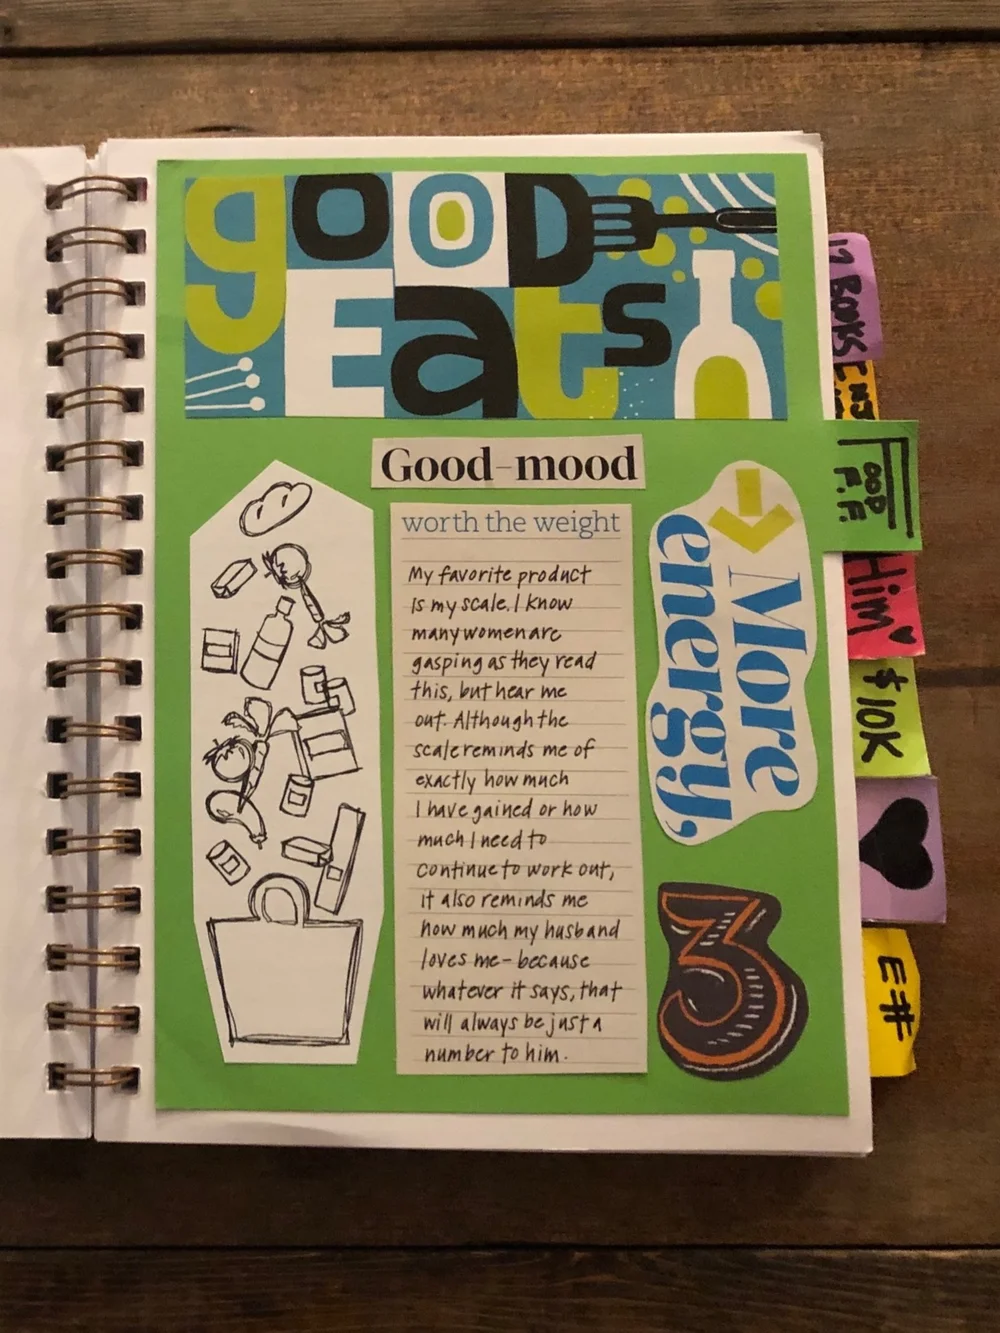 gOOD
Eats
Good-mood
worth the weight
My favorite product
is my scale. I know
many women are
gasping as they read
this, but hear me
out. Although the
scale reminds me of
exactly how much
I have gained or how
much I need to
continue to work out,
it also reminds me
how much my husband
loves me - because
whatever it says, that
will always be just a
number to him.
More
energy,
3
BOOKS
FOOD
F.F.
Him
$10K
E#